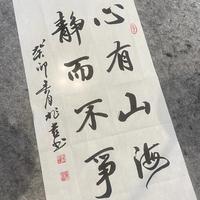 心有山海
静而不争
癸卯